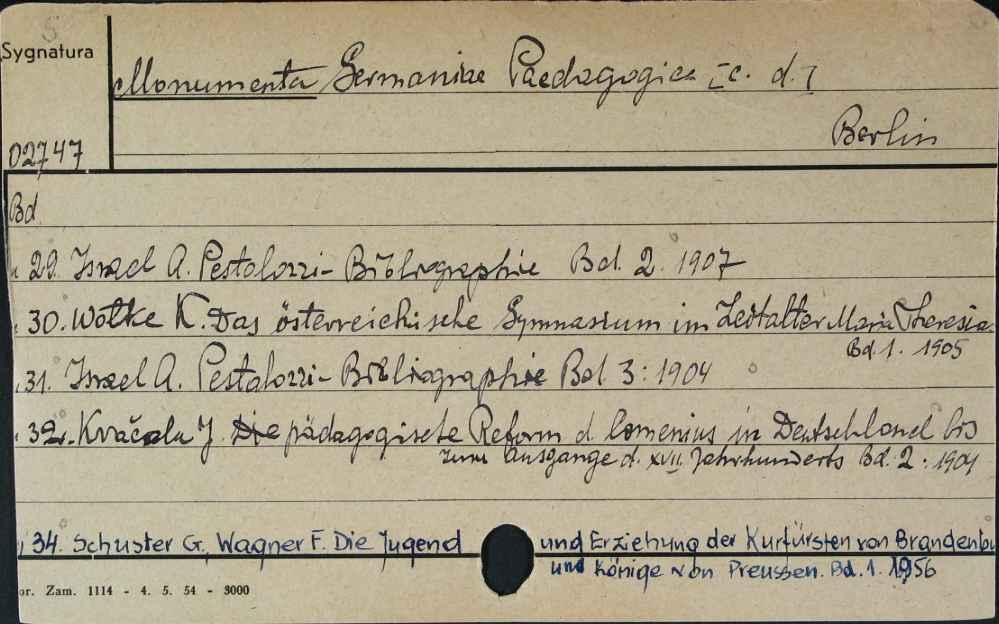 Sygnatura
Monumenta Germaniae Paedagogica [c. d.]
Berlin
02747
Bd
" 29. Israel A. Pestalozzi-Bibliographie Bd. 2. 1907
" 30. Wotke K. Das österreichische Gymnasium im Zeitalter Maria Theresia
Bd. 1. 1905
" 31. Israel A. Pestalozzi-Bibliographie Bd. 3: 1904
" 32. Kvačala J. Die pädagogische Reform d. Comenius in Deutschland bis
zum Ausgange d. XVII Jahrhunderts Bd. 2: 1904
" 34. Schuster G., Wagner F. Die Jugend und Erziehung der Kurfürsten von Brandenbu
und Könige von Preussen. Bd. 1. 1956
or. Zam. 1114 - 4. 5. 54 - 3000